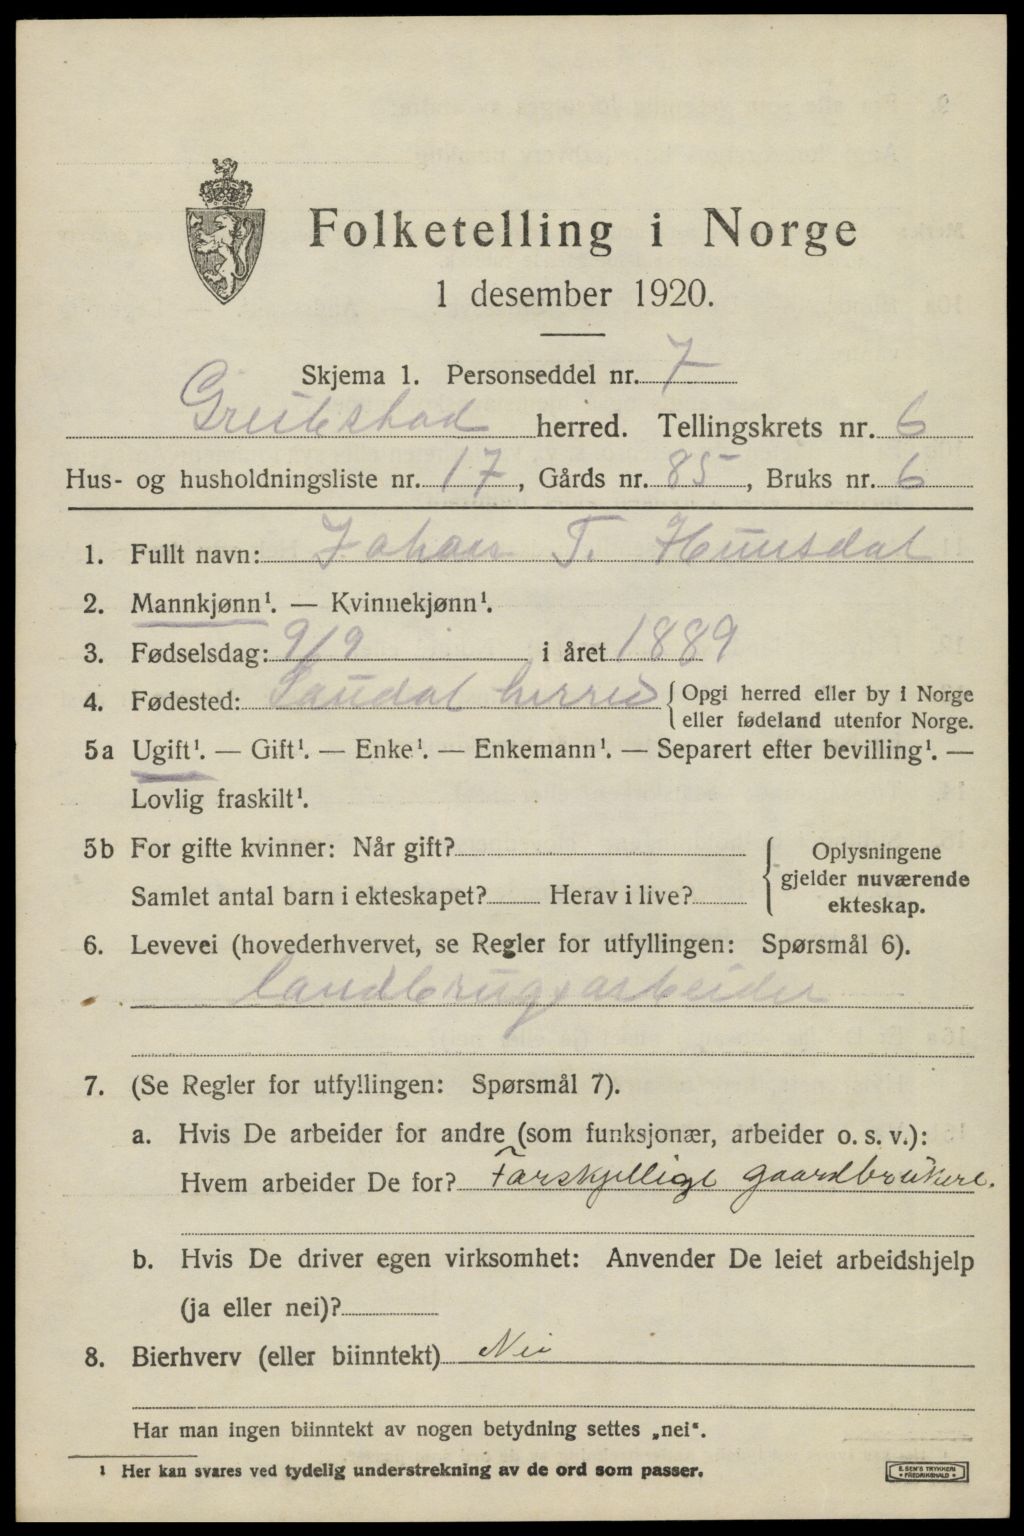 Folketelling i Norge
1 desember 1920.
Skjema 1. Personseddel nr. 7
Greibstad herred. Tellingskrets nr. 6
Hus- og husholdningsliste nr. 17, Gårds nr. 85, Bruks nr. 6
1. Fullt navn: Johan T. Hunsdal
2. Mannkjønn¹. — Kvinnekjønn¹.
3. Fødselsdag: 9/9 i året 1889
4. Fødested: Laudal herred { Opgi herred eller by i Norge
eller fødeland utenfor Norge.
5a Ugift¹. — Gift¹. — Enke¹. — Enkemann¹. — Separert efter bevilling¹. —
Lovlig fraskilt¹.
5b For gifte kvinner: Når gift?
Samlet antal barn i ekteskapet? Herav i live?
{ Oplysningene
gjelder nuværende
ekteskap.
6. Levevei (hovederhvervet, se Regler for utfyllingen: Spørsmål 6).
landbrugsarbeider
7. (Se Regler for utfyllingen: Spørsmål 7).
a. Hvis De arbeider for andre (som funksjonær, arbeider o. s. v.):
Hvem arbeider De for? Forskjellige gaardbrukere.
b. Hvis De driver egen virksomhet: Anvender De leiet arbeidshjelp
(ja eller nei)?
8. Bierhverv (eller biinntekt) Nei
Har man ingen biinntekt av nogen betydning settes „nei“.
¹ Her kan svares ved tydelig understrekning av de ord som passer.
E. SEM'S TRYKKERI
• FREDRIKSHALD •